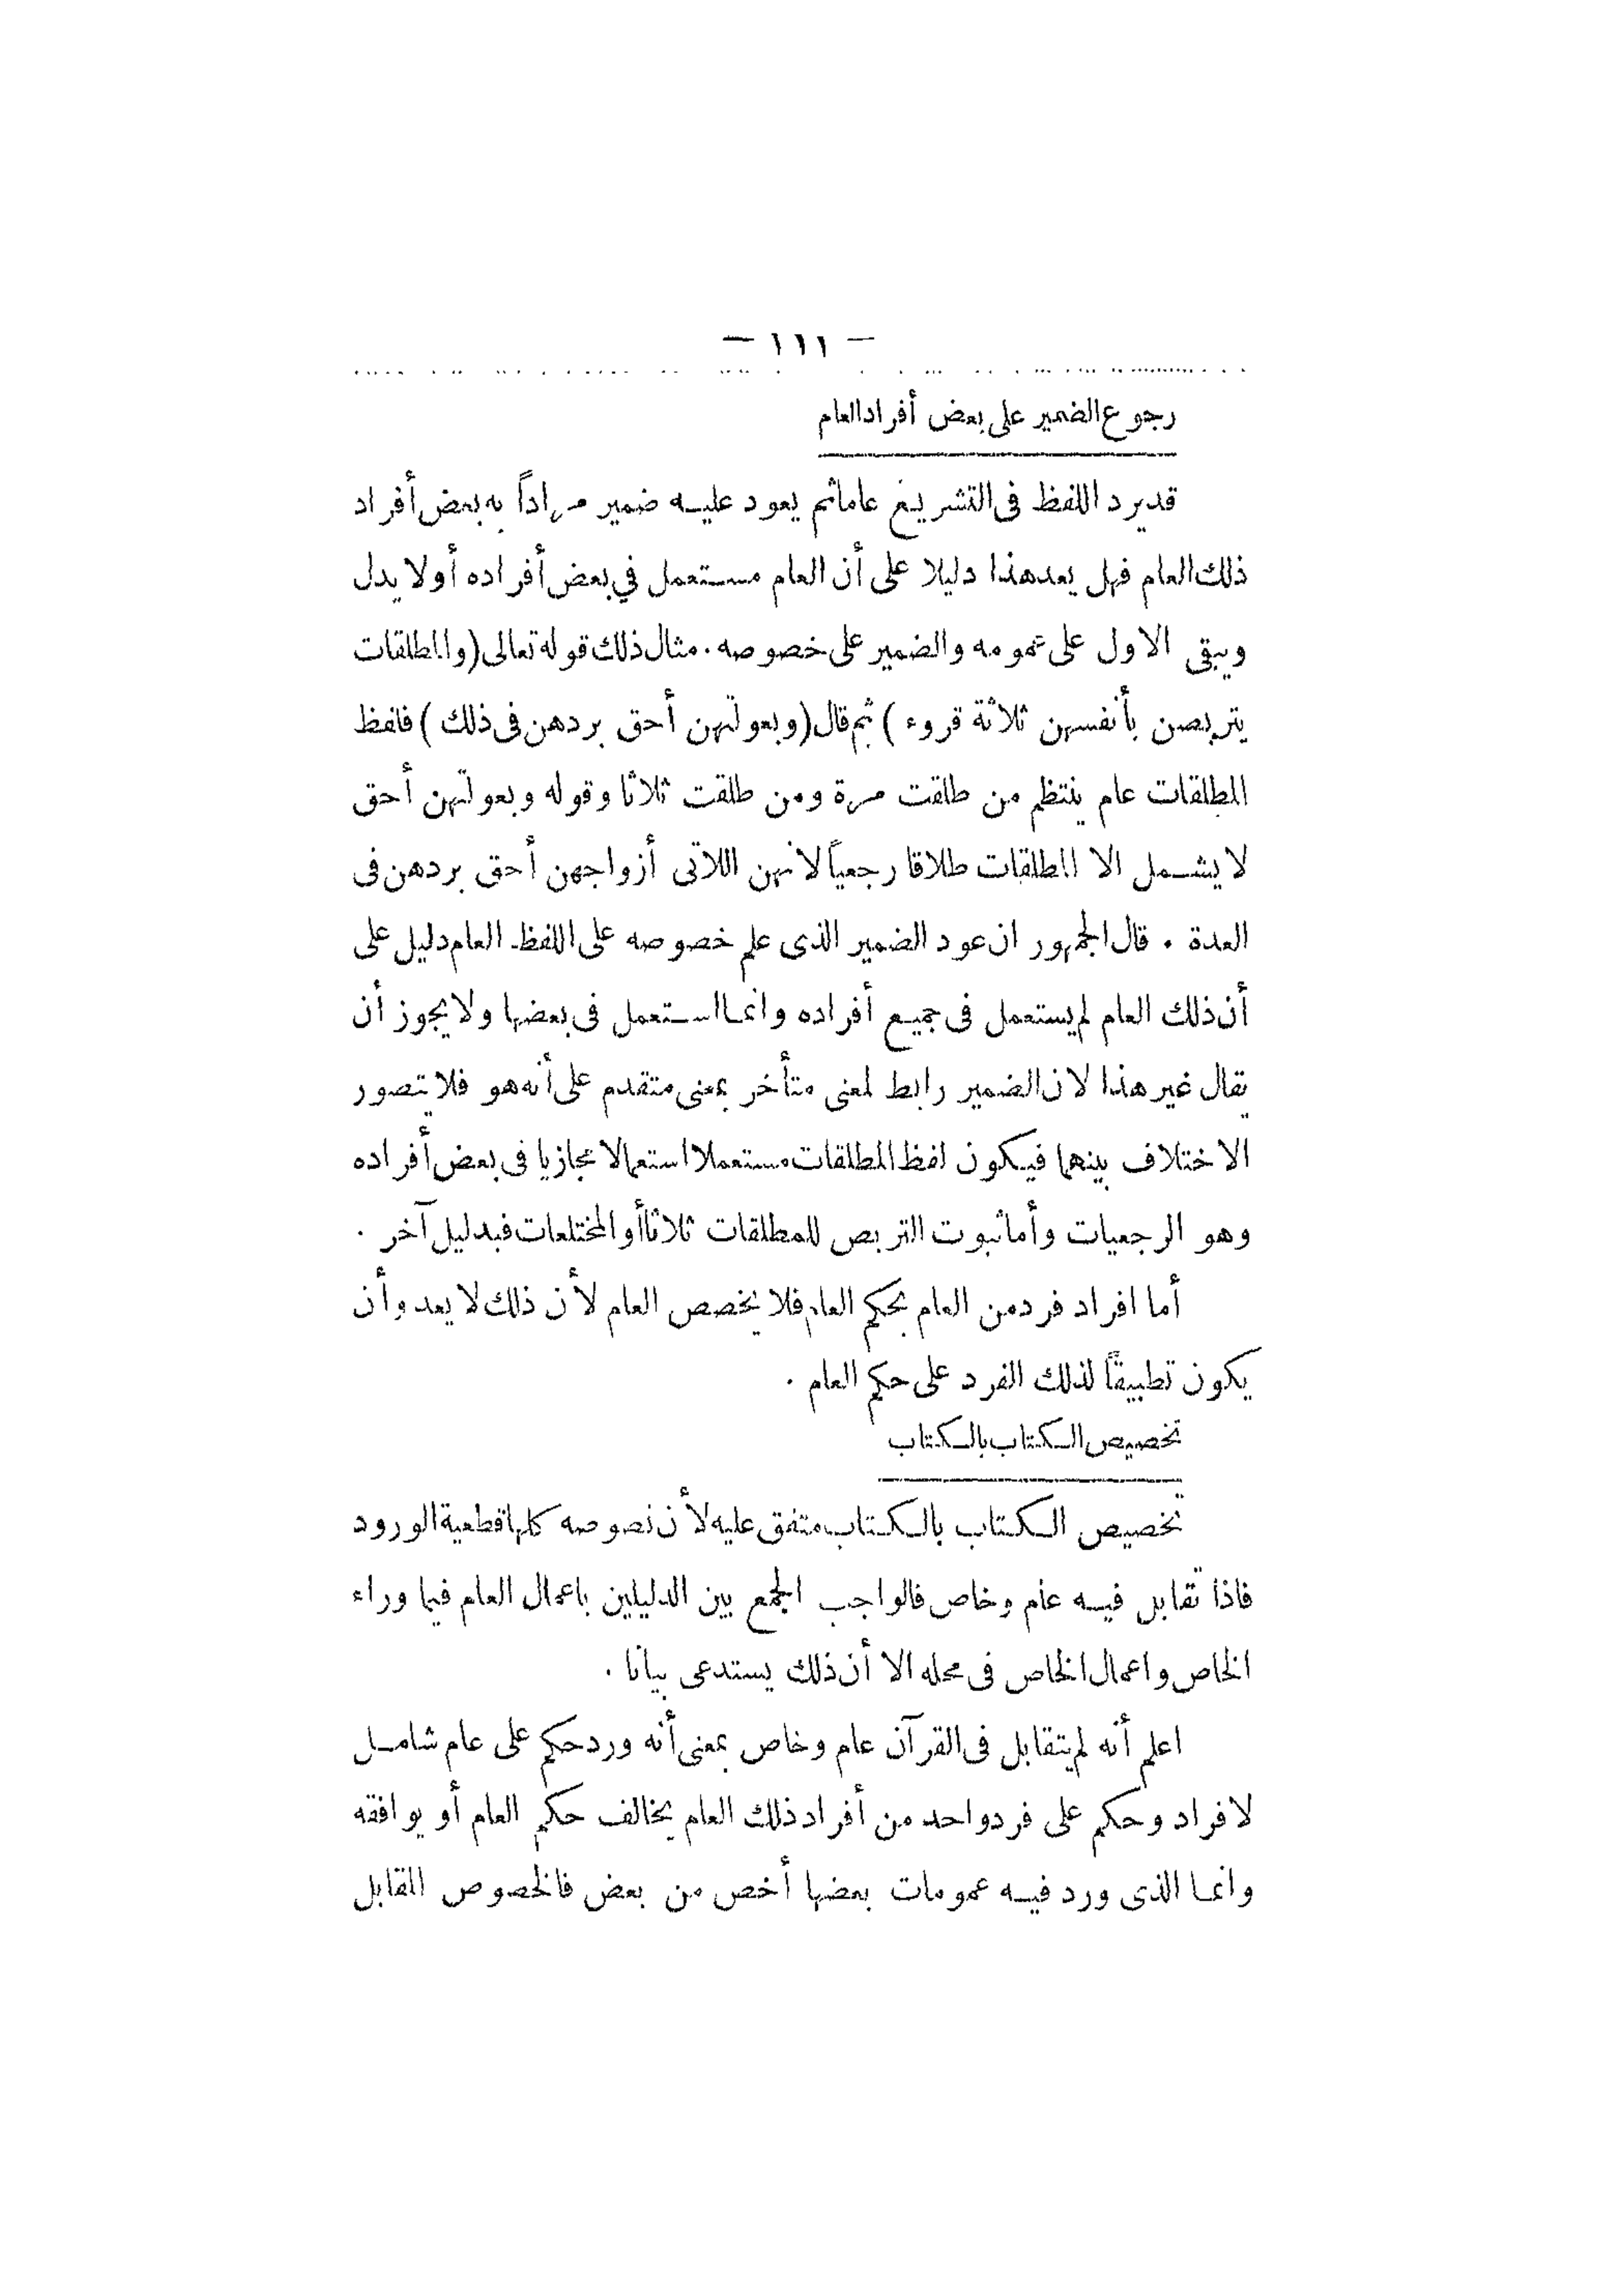 — ١١١ —
رجوع الضمير على بعض أفراد العام
قد يرد اللفظ في التشريع عاما ثم يعود عليه ضمير مراداً به بعض أفراد
ذلك العام فهل يعد هذا دليلا على أن العام مستعمل في بعض أفراده أو لا يدل
ويبقى الاول على عمومه والضمير على خصوصه . مثال ذلك قوله تعالى (والمطلقات
يتربصن بأنفسهن ثلاثة قروء ) ثم قال (وبعولتهن أحق بردهن فى ذلك ) فلفظ
المطلقات عام ينتظم من طلقت مرة ومن طلقت ثلاثا وقوله وبعولتهن أحق
لا يشمل الا المطلقات طلاقا رجعياً لانهن اللاتى أزواجهن أحق بردهن فى
العدة . قال الجمهور ان عود الضمير الذى علم خصوصه على اللفظ العام دليل على
أن ذلك العام لم يستعمل فى جميع أفراده وانما استعمل فى بعضها ولا يجوز أن
يقال غير هذا لان الضمير رابط لمعنى متأخر بمعنى متقدم على أنه هو فلا يتصور
الاختلاف بينهما فيكون لفظ المطلقات مستعملا استعمالا مجازيا فى بعض أفراده
وهو الرجعيات وأما ثبوت التربص للمطلقات ثلاثا أو المختلعات فبدليل آخر .
أما افراد فرد من العام بحكم العام فلا يخصص العام لأن ذلك لا يعدو أن
يكون تطبيقاً لذلك الفرد على حكم العام .
تخصيص الكتاب بالكتاب
تخصيص الكتاب بالكتاب متفق عليه لأن نصوصه كلها قطعية الورود
فاذا تقابل فيه عام وخاص فالواجب الجمع بين الدليلين باعمال العام فيما وراء
الخاص واعمال الخاص فى محله الا أن ذلك يستدعى بيانا .
اعلم أنه لم يتقابل فى القرآن عام وخاص بمعنى أنه ورد حكم على عام شامل
لافراد وحكم على فرد واحد من أفراد ذلك العام يخالف حكم العام أو يوافقه
وانما الذى ورد فيه عمومات بعضها أخص من بعض فالخصوص المقابل